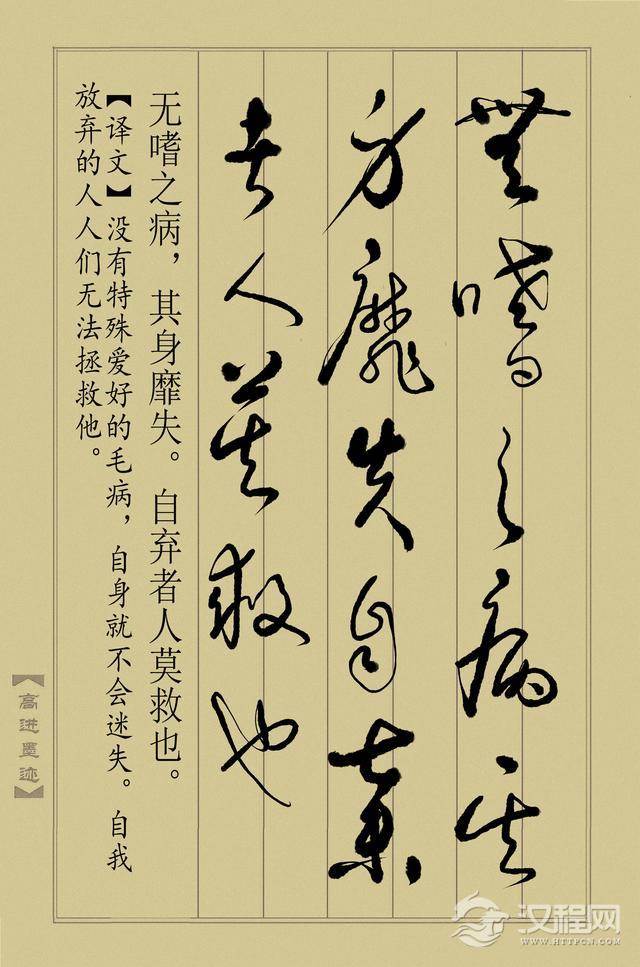 無嗜之病其
身靡失自棄
者人莫救也
无嗜之病，其身靡失。自弃者人莫救也。
【译文】没有特殊爱好的毛病，自身就不会迷失。自我
放弃的人人们无法拯救他。
【高进墨迹】
汉程网
WWW.HTTPCN.COM